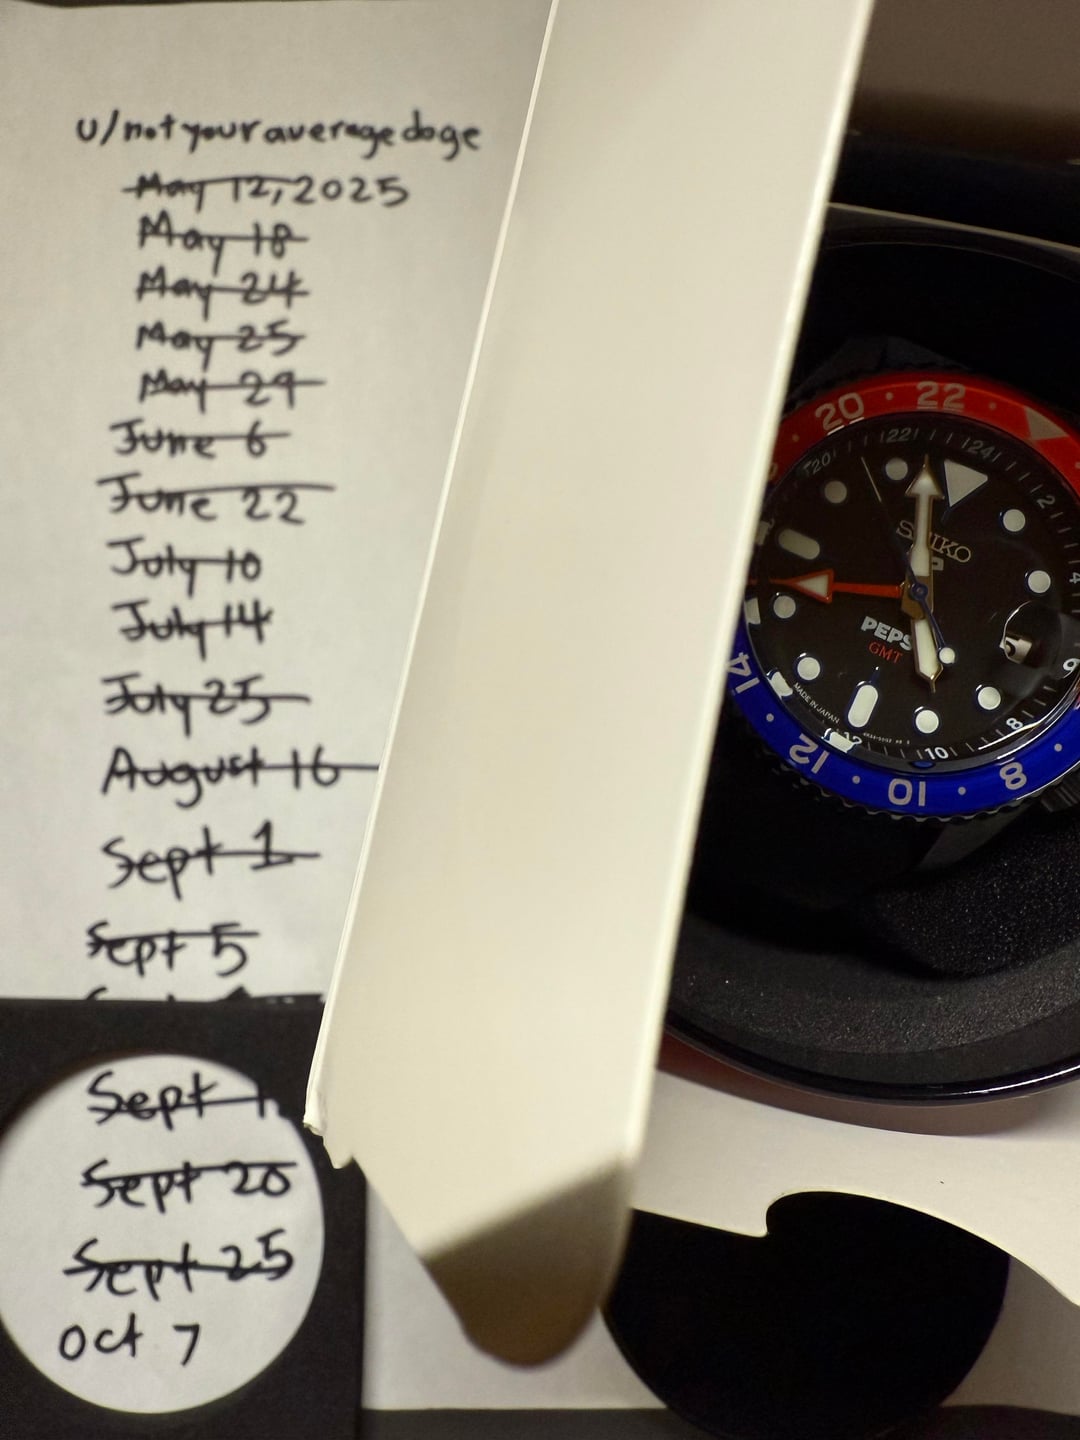 u/notyouraveragedoge
May 12, 2025
May 18
May 24
May 25
May 29
June 6
June 22
July 10
July 14
July 25
August 16
Sept 1
Sept 5
Sept
Sept 20
Sept 25
Oct 7
20 22
20 22 24 2 4
SEIKO
PEPS
GMT
MADE IN JAPAN
12 10 8
14 12 10 8